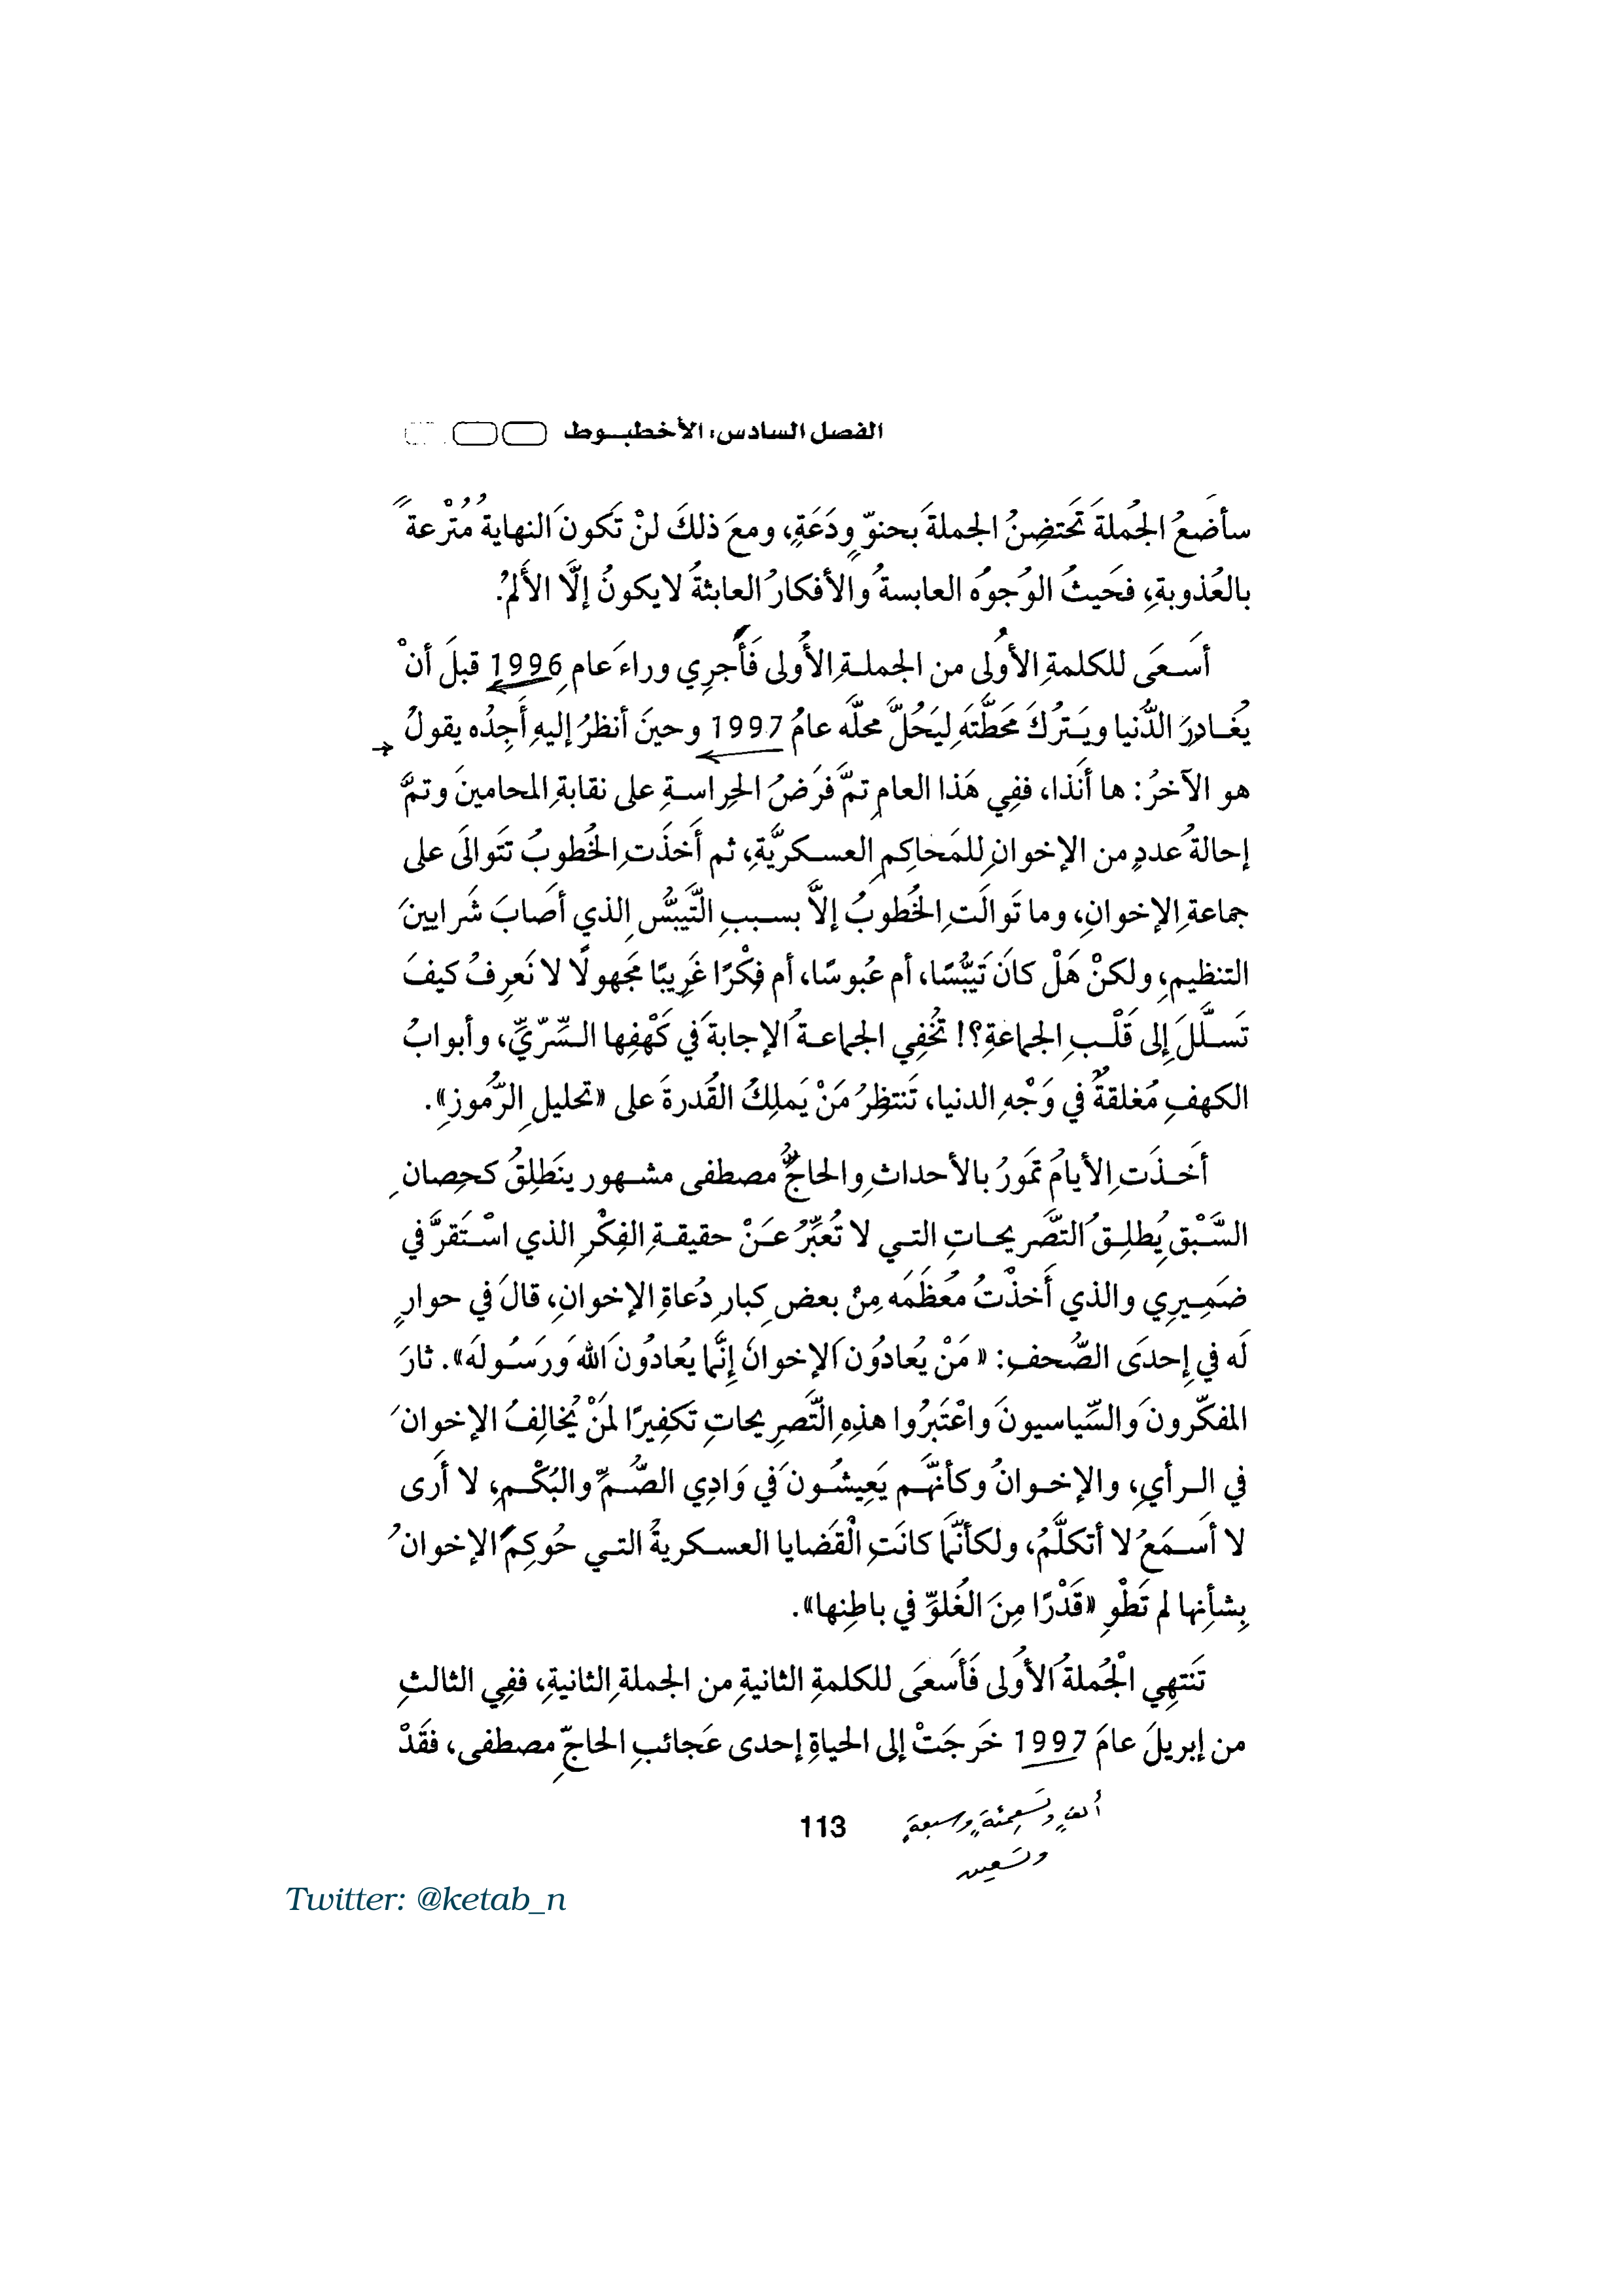 الفصل السادس: الأخطبـوط
سأضَعُ الجُملةَ تَحتضِنُ الجملةَ بحنوّ ودَعَةٍ، ومعَ ذلكَ لنْ تَكونَ النهايةُ مُتْرعةً
بالعُذوبةِ، فحَيثُ الوُجوُه العابسةُ والأفكارُ العابثةُ لا يكونُ إلَّا الأَلمُ.
أَسـعَى للكلمةِ الأُولى من الجملـةِ الأُولى فَأَجرِي وراءَ عامِ 1996 قبلَ أنْ
يُغـادِرَ الدُّنيا ويَـترُكَ مَحَطَّتَه لِيَحُلَّ محلَّه عامُ 1997 وحينَ أنظرُ إليهِ أَجِدُه يقولُ
هو الآخرُ: ها أَنَذا، ففِي هَذا العامِ تمَّ فرَضُ الحِراسـةِ على نقابةِ المحامينَ وتمَّ
إحالةُ عددٍ من الإخوانِ للمَحاكِمِ العسـكريَّةِ، ثم أَخذَت الخُطوبُ تتَوالَى على
جماعةِ الإخوانِ، وما تَوالَتِ الخُطوبُ إلاَّ بسـببِ التَّيبُّسِ الذي أصَابَ شَرايينَ
التنظيمِ، ولكنْ هَلْ كانَ تَيبُّسًا، أم عبُوسًا، أم فِكْرًا غَرِيبًا مَجهولًا لا نَعرِفُ كيفَ
تَسـلَّلَ إلى قَلْـبِ الجماعَةِ؟! تُخفِي الجماعـةُ الإجابةَ في كَهْفِها السِّرّيِّ، وأبوابُ
الكهفِ مُغلقةٌ في وَجْهِ الدنيا، تَنتظِرُ مَنْ يَملِكُ القُدرةَ على «تحليلِ الرُّموزِ».
أَخـذَتِ الأيامُ تمَورُ بالأحداثِ والحاجُّ مصطفى مشـهور ينَطلِقُ كحِصانِ
السَّـبْقِ يُطلِـقُ التَّصريحـاتِ التـي لا تُعبِّرُ عـَنْ حقيقـةِ الفِكْرِ الذي اسْـتَقرَّ في
ضَمِـيرِي والذي أَخذْتُ مُعظَمَه مِنْ بعضِ كِبارِ دُعاةِ الإخوانِ، قالَ في حوارٍ
لَه في إحدَى الصُّحفِ: « مَنْ يُعادُونَ الإخوانَ إنَّما يُعادُونَ اللهَ ورَسـُولَه». ثارَ
المفكّرونَ والسِّياسيونَ واعْتَبرُوا هذِهِ التَّصرِيحاتِ تَكفِيرًا لمَنْ يُخالِفُ الإخوانَ
في الـرأيِ، والإخـوانُ وكأنهَّـم يَعِيشُـونَ في وَادِي الصُّـمِّ والبُكْـمِ، لا أَرى
لا أَسـمَعُ لا أتكلَّمُ، ولكأنَّما كانَتِ الْقَضايا العسـكريةُ التـي حُوكِمَ الإخوانُ
بِشأنِها لم تَطْوِ «قَدْرًا مِنَ الغُلوِّ في باطِنها».
تَنتهِي الْجُملةُ الأُولى فَأَسعَى للكلمةِ الثانيةِ من الجملةِ الثانيةِ، ففِي الثالثِ
من إبريلَ عامَ 1997 خَرجَتْ إلى الحياةِ إحدى عَجائبِ الحاجِّ مصطفى، فقَدْ
ألفٍ وتسعمئةٍ وسبعةٍ
وتسعين
113
Twitter: @ketab_n